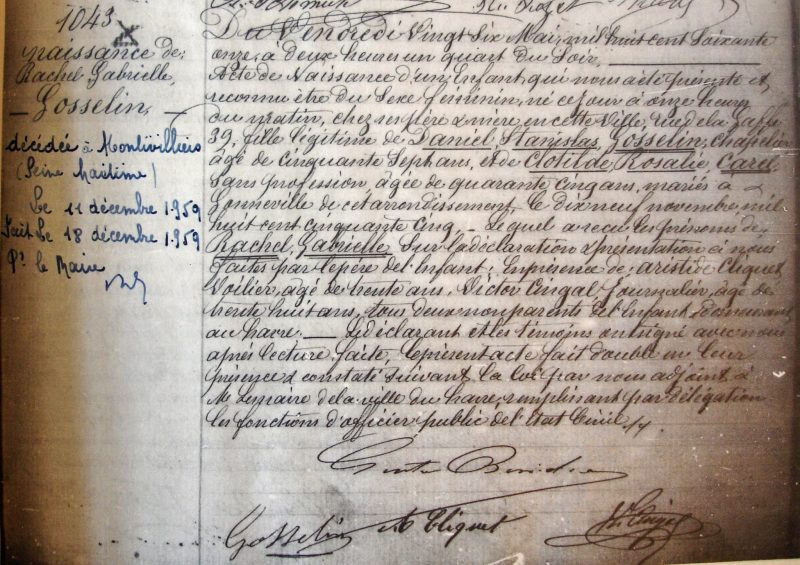 1043
naissance de
Rachel Gabrielle,
Gosselin,
décédée à Montivilliers
(Seine Maritime)
Le 11 décembre 1959
Fait Le 18 décembre 1959
Pr le Maire
Du Vendredi Vingt Six Mai, mil huit cent Soixante
onze, à deux heures un quart du Soir,
Acte de Naissance d'un Enfant qui nous a été présenté et
reconnu être du Sexe féminin, né ce jour à onze heures
du matin, chez ses père & mère en cette Ville, rue de la Gaffe
39, fille légitime de Daniel Stanislas, Gosselin, Chapelier
âgé de Cinquante Sept ans, et de Clotilde, Rosalie Carel
Sans profession, âgée de quarante cinq ans, mariés à
Sonneville de cet arrondissement, le dix neuf novembre mil
huit cent cinquante Cinq, — Lequel a reçu les prénoms de
Rachel, Gabrielle Sur la déclaration & présentation à nous
faites par le père de l'Enfant; En présence de, Aristide Cliquet
Voilier, âgé de trente ans, Victor Cingal Journalier, âgé de
trente huit ans, tous deux non parents de l'Enfant, & demeurant
au havre. — Le déclarant et les témoins ont signé avec nous
après lecture faite, le présent acte fait double en leur
présence & constaté suivant la loi par nous adjoint à
Mr le maire de la ville du havre, remplissant par délégation
les fonctions d'officier public de l'Etat Civil.
Gosselin
A Cliquet